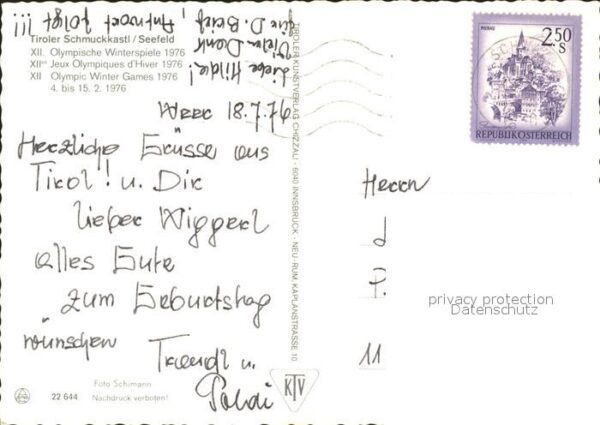 Tiroler Schmuckkastl / Seefeld
XII. Olympische Winterspiele 1976
XIIes Jeux Olympiques d'Hiver 1976
XII Olympic Winter Games 1976
4. bis 15. 2. 1976
Liebe Hilde!
Vielen Dank
für D. Brief,
Antwort folgt !!!
18.7.76
Herzliche Grüsse aus
Tirol! u. Dir
lieber Wiggerl
alles Gute
zum Geburtstag
wünschen
Traudl u.
Poldi
Foto Schimann
22 644
Nachdruck verboten!
TIROLER KUNSTVERLAG CHIZZALI · 6040 INNSBRUCK - NEU-RUM, KAPLANSTRASSE 10
KTV
2.50
S
REPUBLIK ÖSTERREICH
Herrn
P.
11
privacy protection
Datenschutz